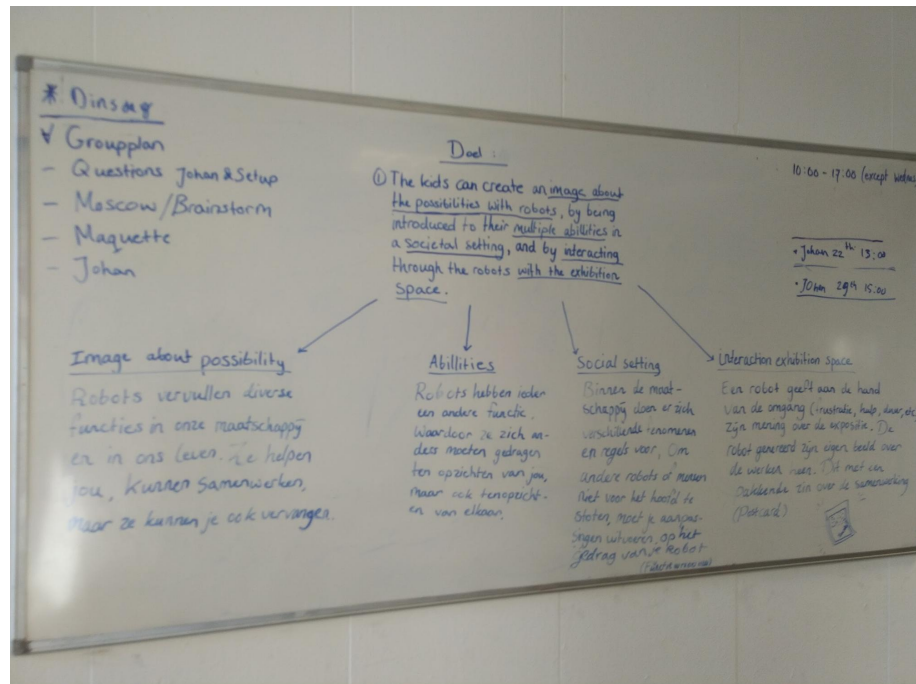 * Dinsdag
√ Groupplan
- Questions Johan & Setup
- Moscow/Brainstorm
- Maquette
- Johan
Doel :
① The kids can create an image about
the possibilities with robots, by being
introduced to their multiple abillities in
a societal setting, and by interacting
through the robots with the exhibition
space.
10:00 - 17:00 (except
• Johan 22th 13:00
• Johan 29th 15:00
Image about possibility
Robots vervullen diverse
functies in onze maatschappij
en in ons leven. Ze helpen
jou, kunnen samenwerken,
maar ze kunnen je ook vervangen.
Abillities
Robots hebben ieder
een andere functie.
Waardoor ze zich an-
ders moeten gedragen
ten opzichten van jou,
maar ook tenopzicht-
en van elkaar.
Social setting
Binnen de maat-
schappij doen er zich
verschillende fenomenen
en regels voor, Om
andere robots of mensen
niet voor het hoofd te
stoten, moet je aanpas-
singen uitvoeren, op het
gedrag van je Robot
interaction exhibition space
Een robot geeft aan de hand
van de omgang (frustratie, hulp, duur, etc)
zijn mening over de expositie. De
robot genereerd zijn eigen beeld over
de werken heen. Dit met een
zin over de samenwerking
(Postcard)